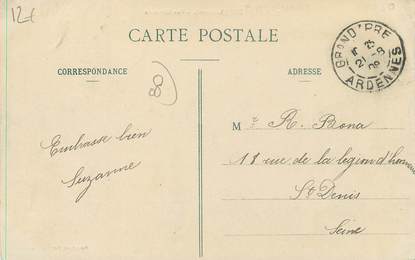 12€
CARTE POSTALE
CORRESPONDANCE
ADRESSE
80
GRAND'PRÉ
ARDENNES
Embrasse bien
Suzanne
Mr R. Bona
18 rue de la legion d'honneur
St Denis
Seine